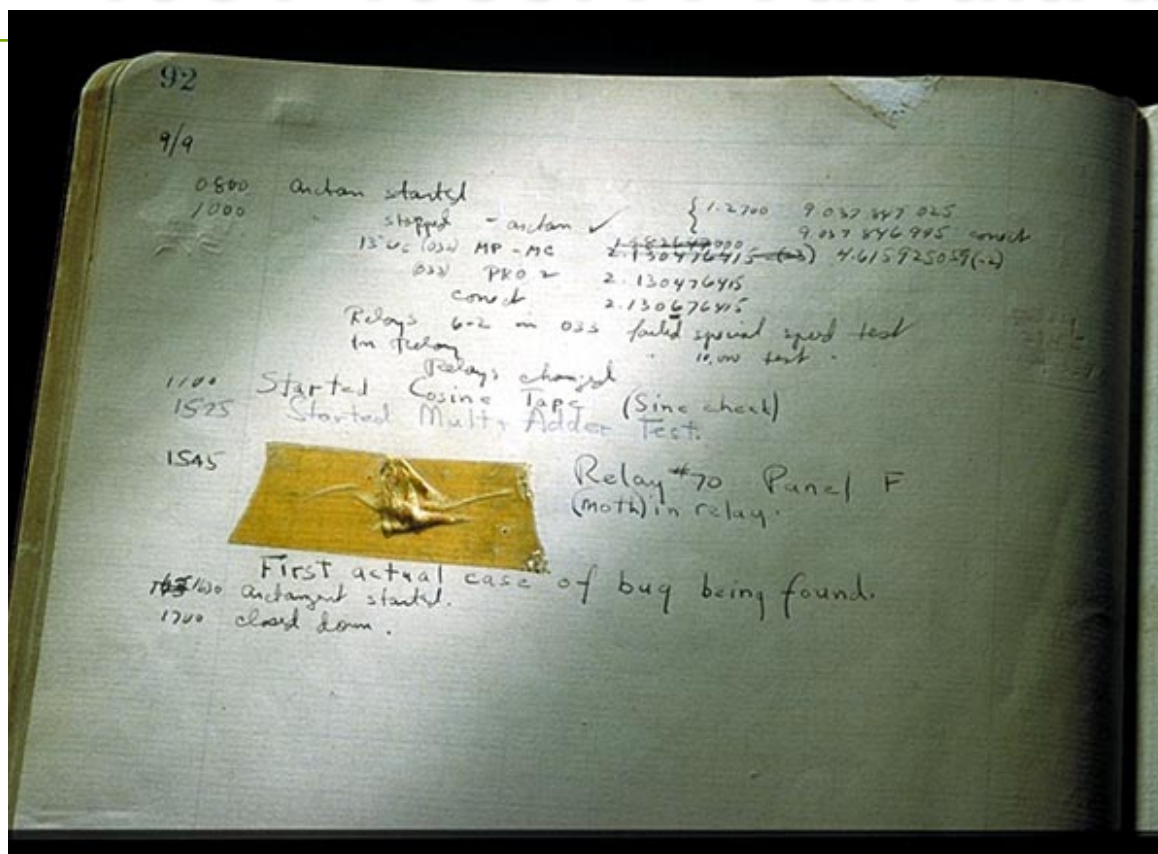 92
9/9
0800 arctan started
1000 " stopped - arctan ✓ { 1.2700 9.037 847 025
9.037 846 995 correct
13"uc (032) MP - MC 2.130476415 (-3) 4.615925059(-2)
(033) PRO 2 2.130476415
correct 2.130676415
Relays 6-2 in 033 failed special speed test
In Relay " 10,000 test .
Relays changed
1100 Started Cosine Tape (Sine check)
1525 Started Mult + Adder Test.
1545 Relay #70 Panel F
(moth) in relay.
First actual case of bug being found.
1630 arctangent started.
1700 closed down.